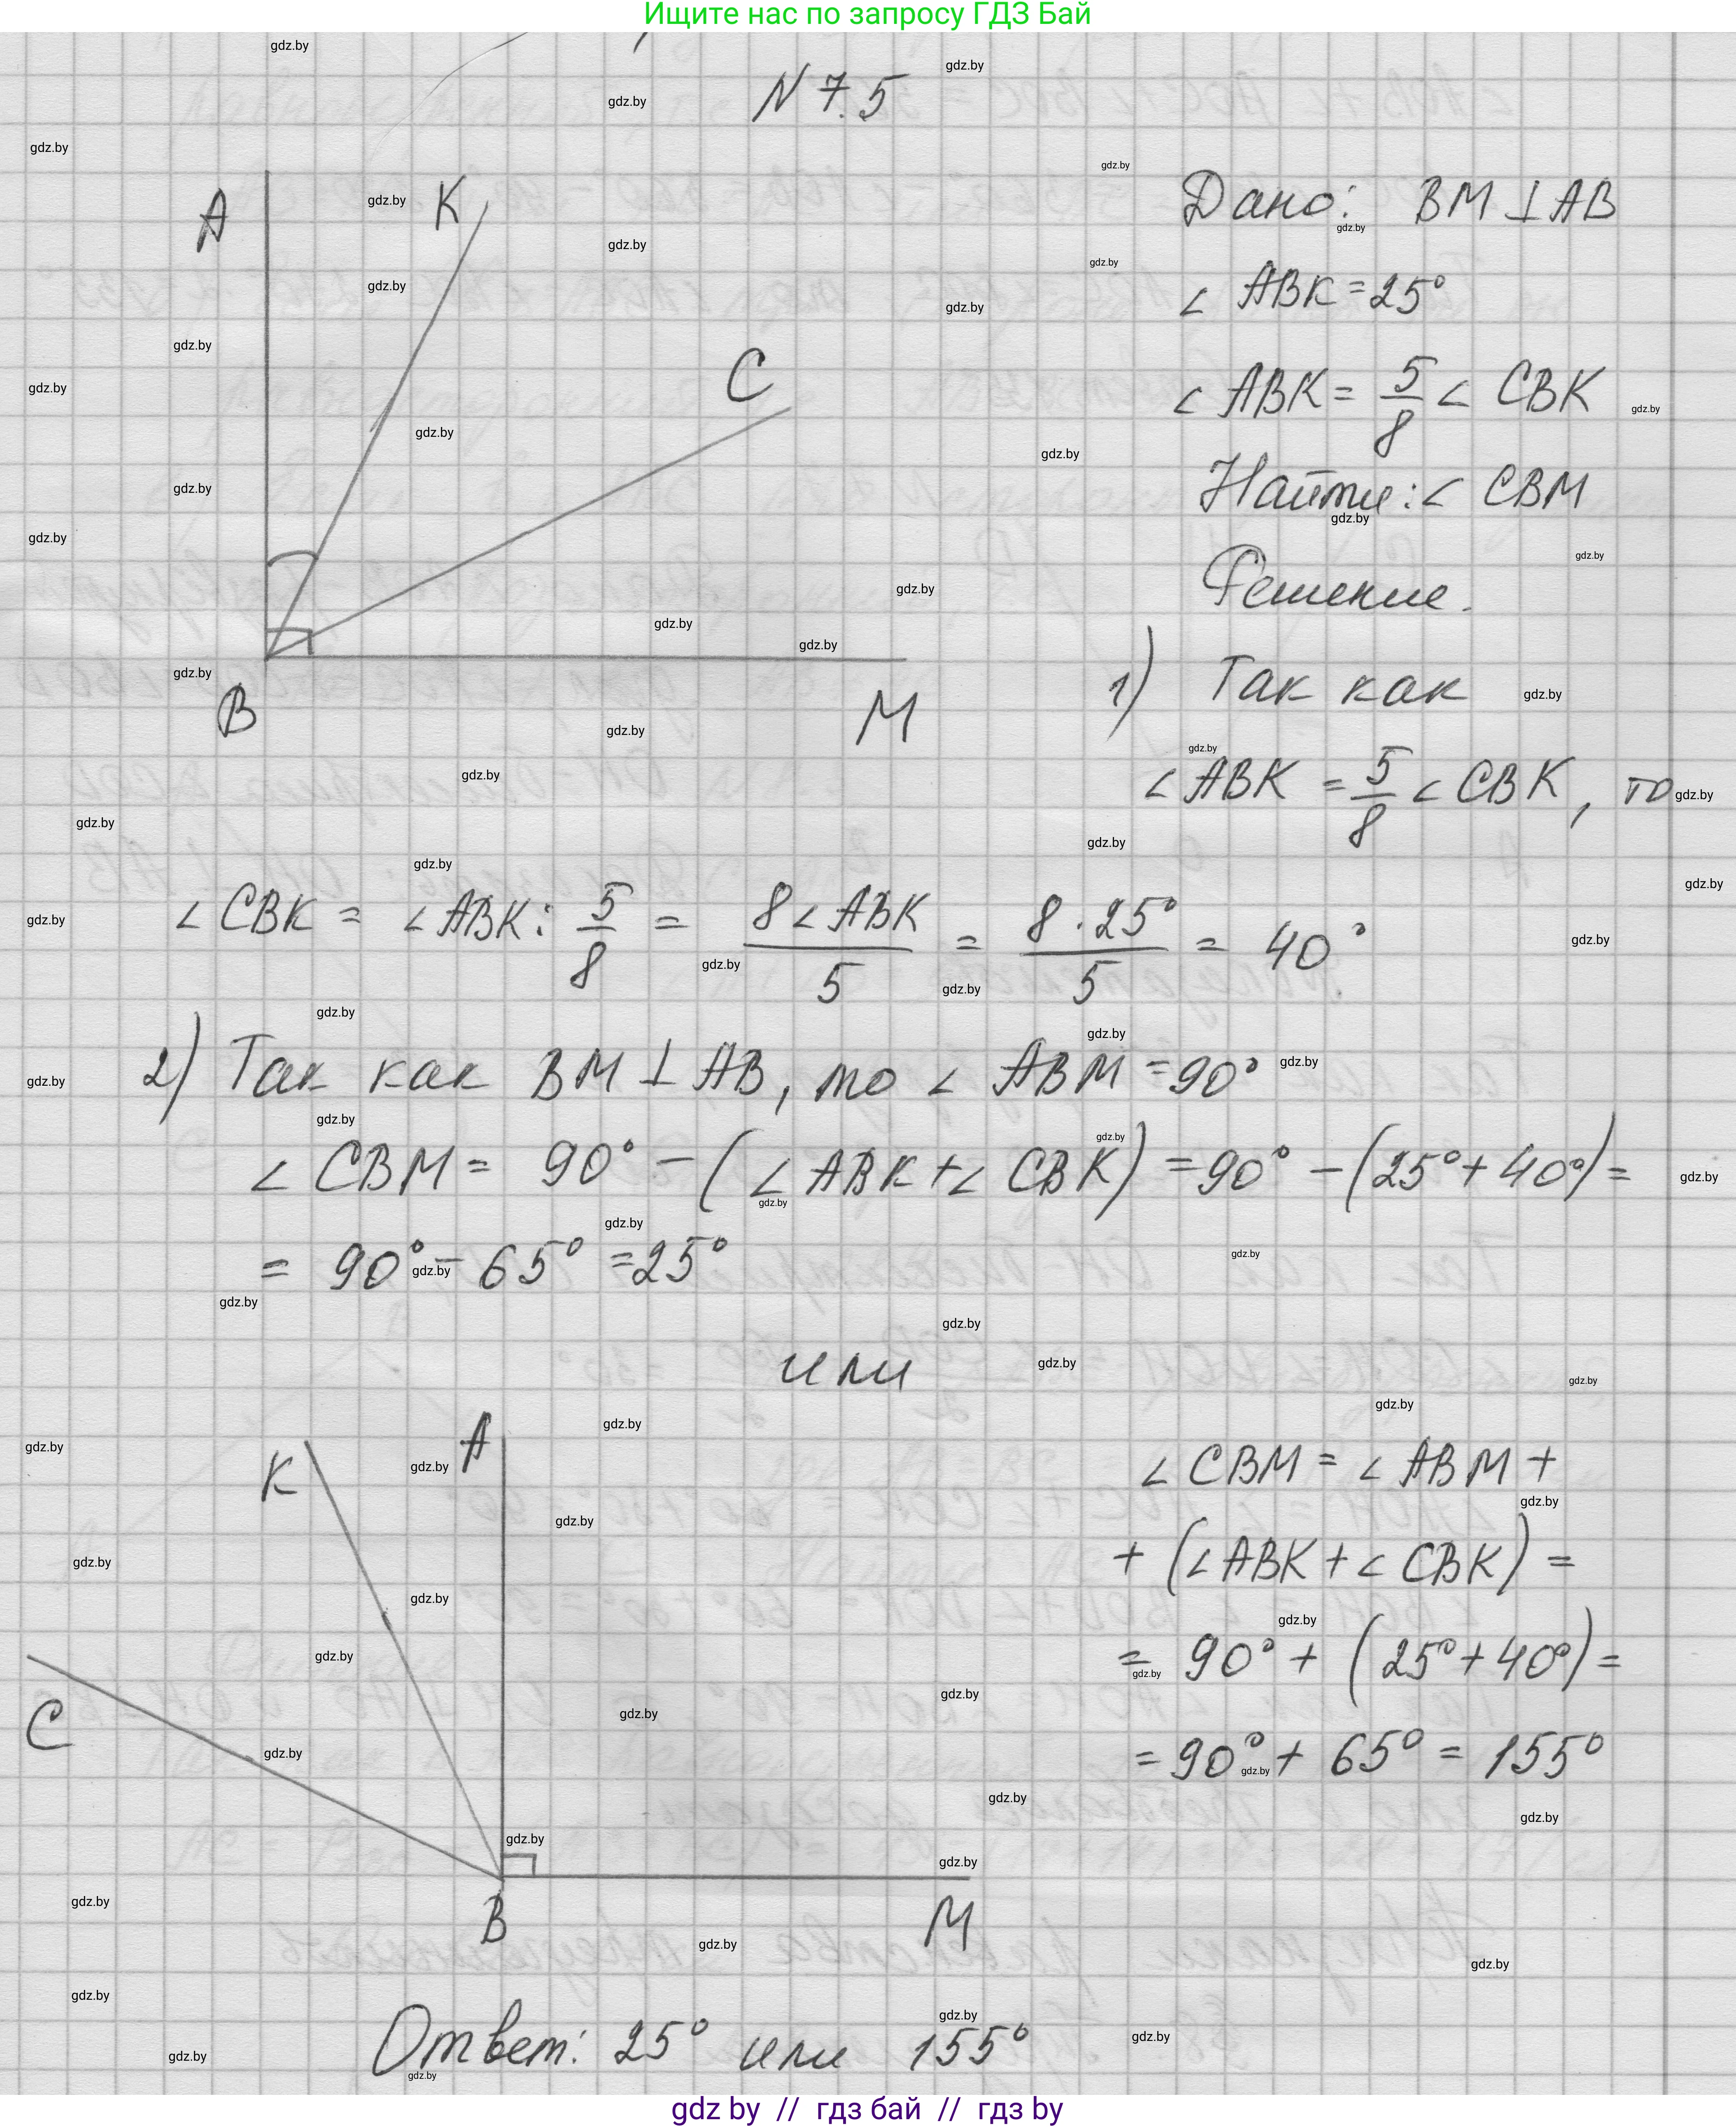 Ищите нас по запросу ГДЗ Бай
N 7.5
A K C B M
Дано: BM ⊥ AB
∠ ABK = 25°
∠ ABK = 5/8 ∠ CBK
Найти: ∠ CBM
Решение.
1) Так как
∠ ABK = 5/8 ∠ CBK, то
∠ CBK = ∠ ABK : 5/8 = 8∠ABK/5 = 8 · 25°/5 = 40°.
2) Так как BM ⊥ AB, то ∠ ABM = 90°
∠ CBM = 90° − (∠ ABK + ∠ CBK) = 90° − (25° + 40°) =
= 90° − 65° = 25°
или
K A C B M
∠ CBM = ∠ ABM +
+ (∠ABK + ∠ CBK) =
= 90° + (25° + 40°) =
= 90° + 65° = 155°
Ответ: 25° или 155°
gdz by // гдз бай // гдз by